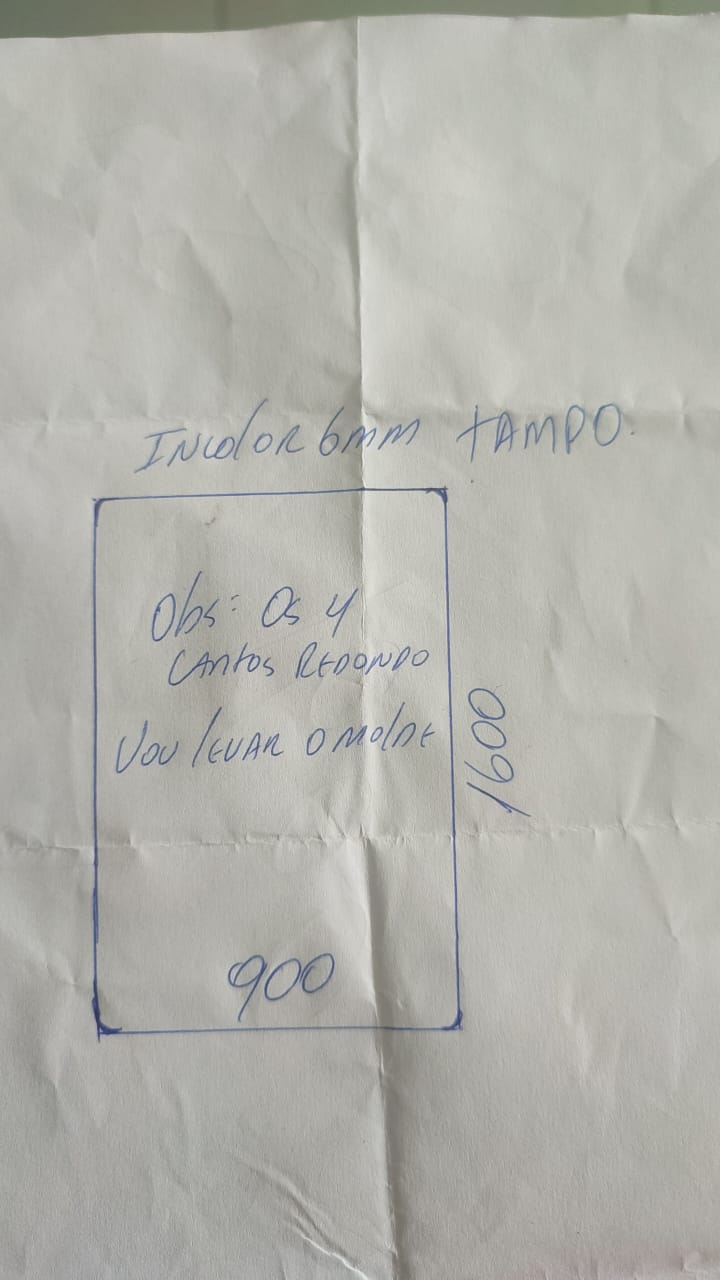 INColoR 6mm TAMPO.
Obs: Os 4
CANtos REDONDO
Vou lEVAR O MolDE
1600
900